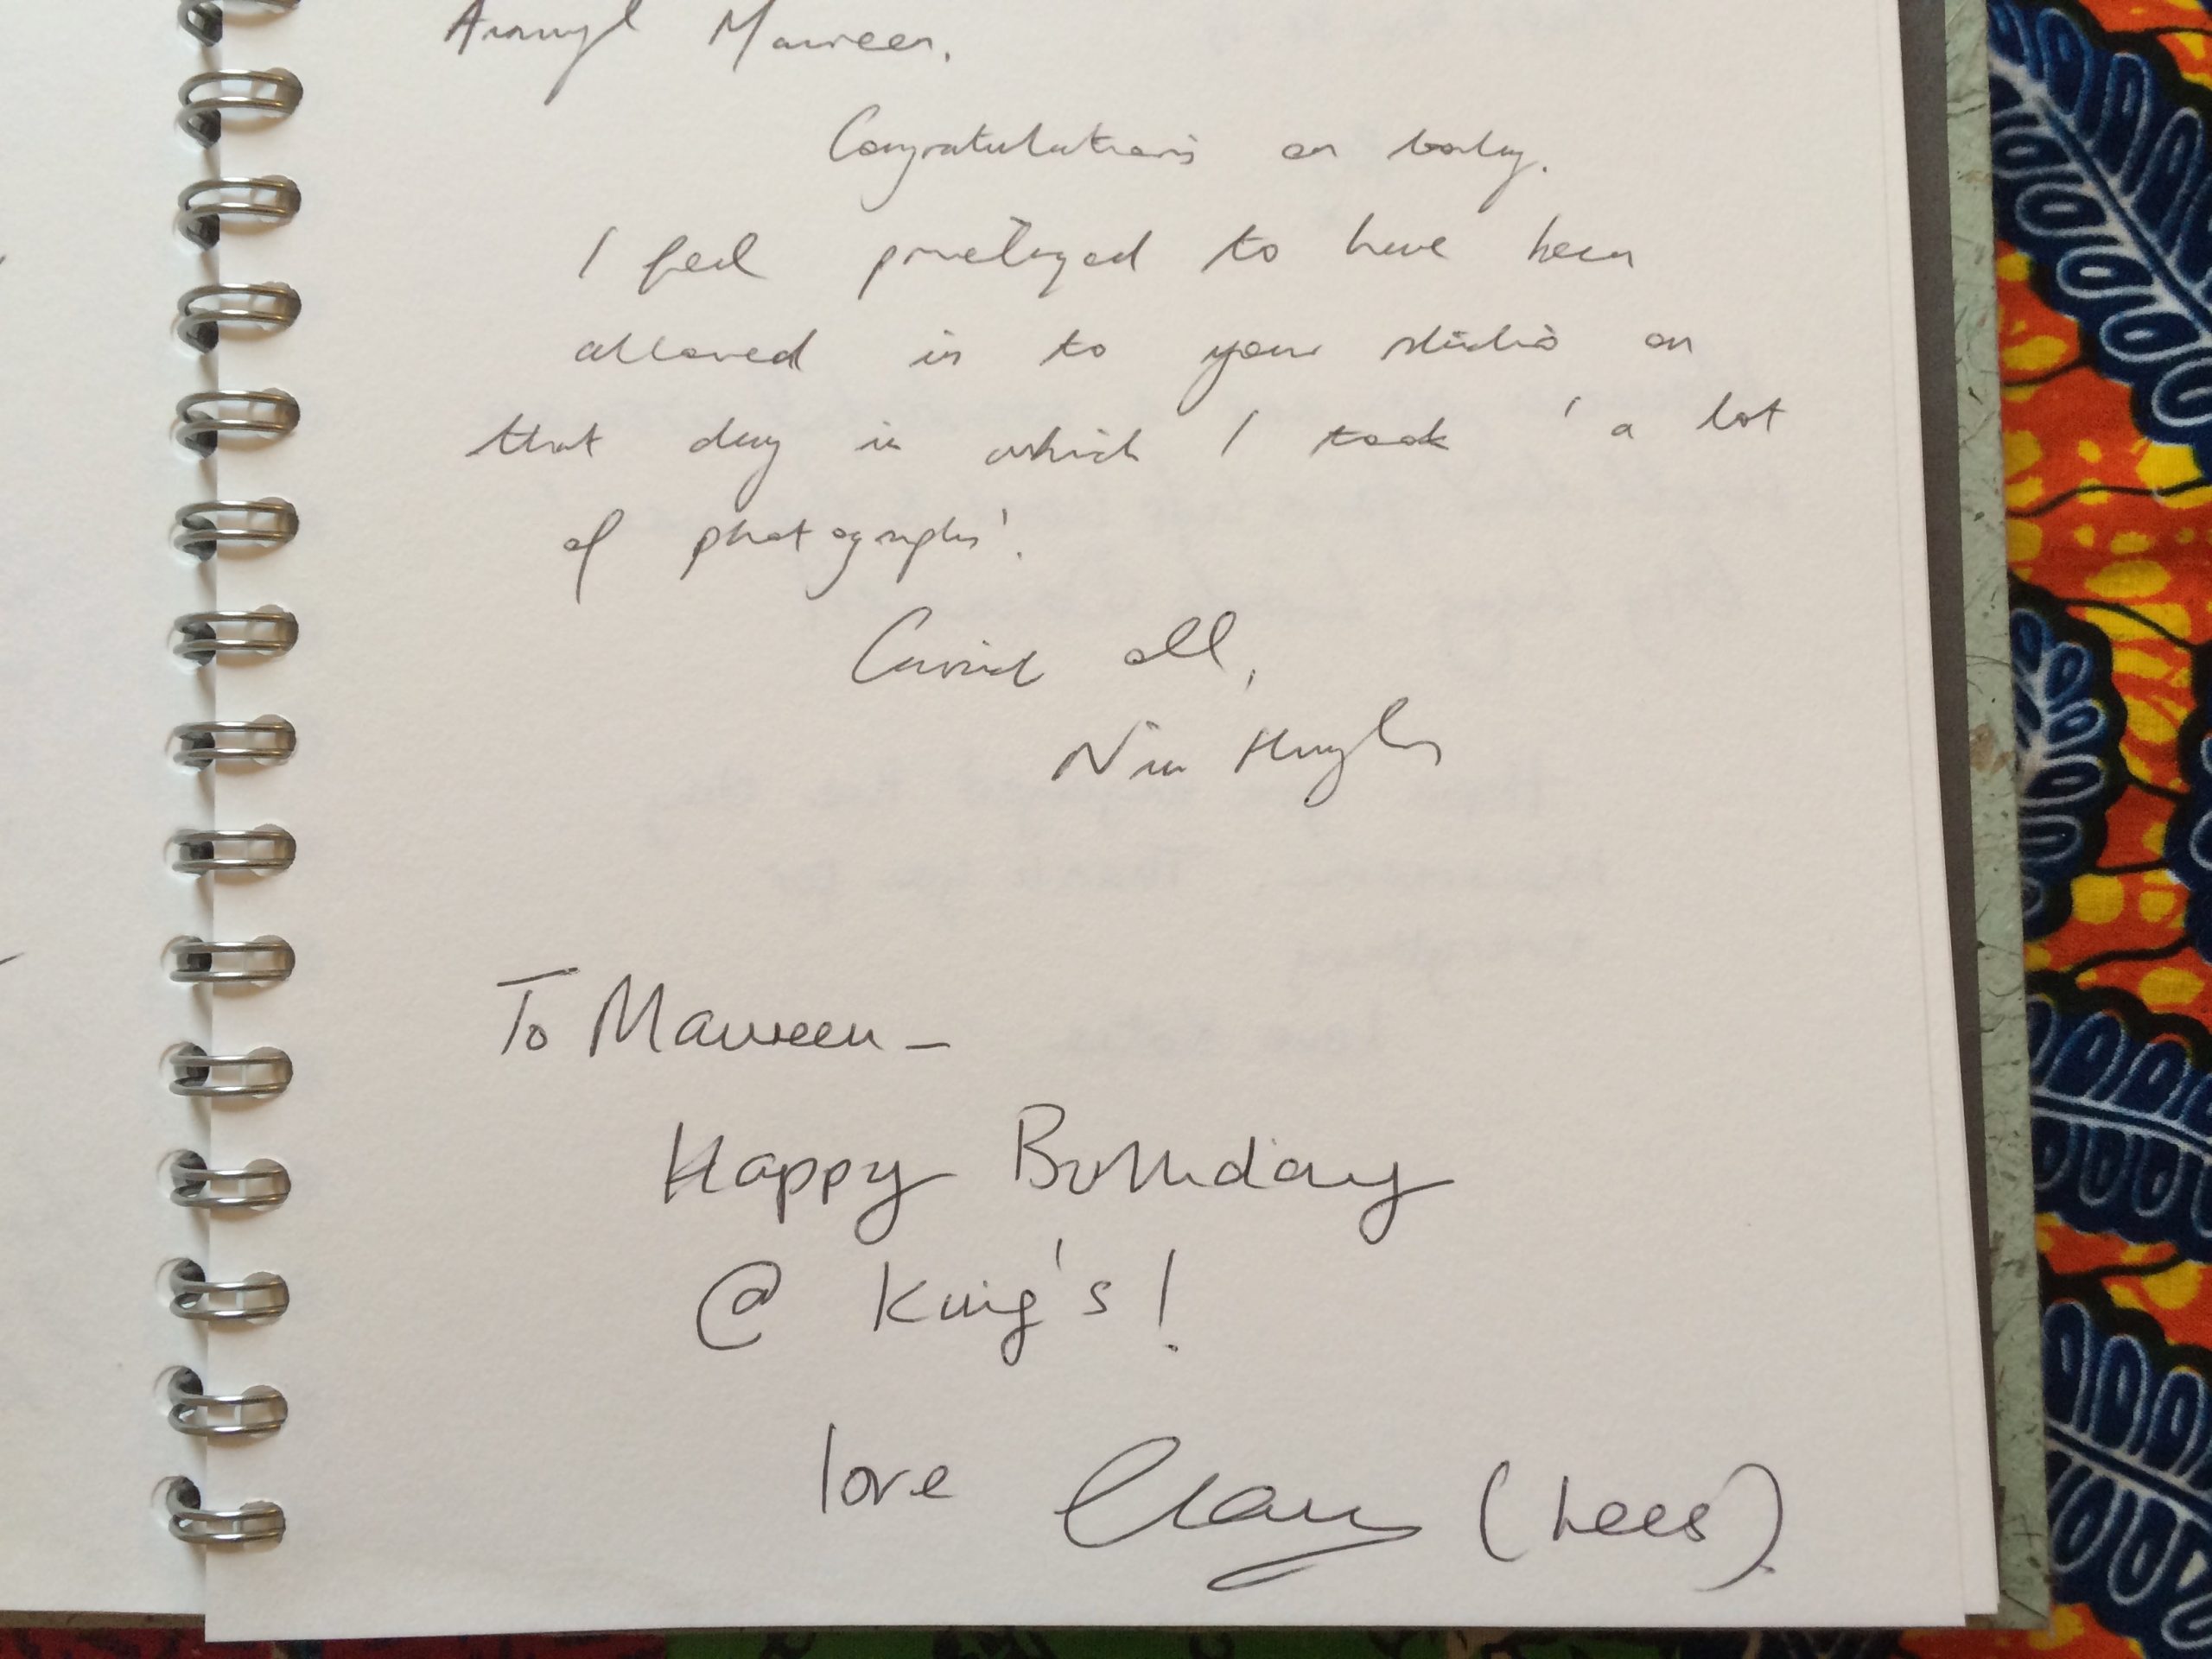 Annwyl Maureen,
Congratulations on today.
I feel privileged to have been
allowed in to your studio on
that day in which I took 'a lot
of photographs'.
Cariad all,
Nia Hughes
To Maureen -
Happy Birthday
@ King's!
love (Lees).